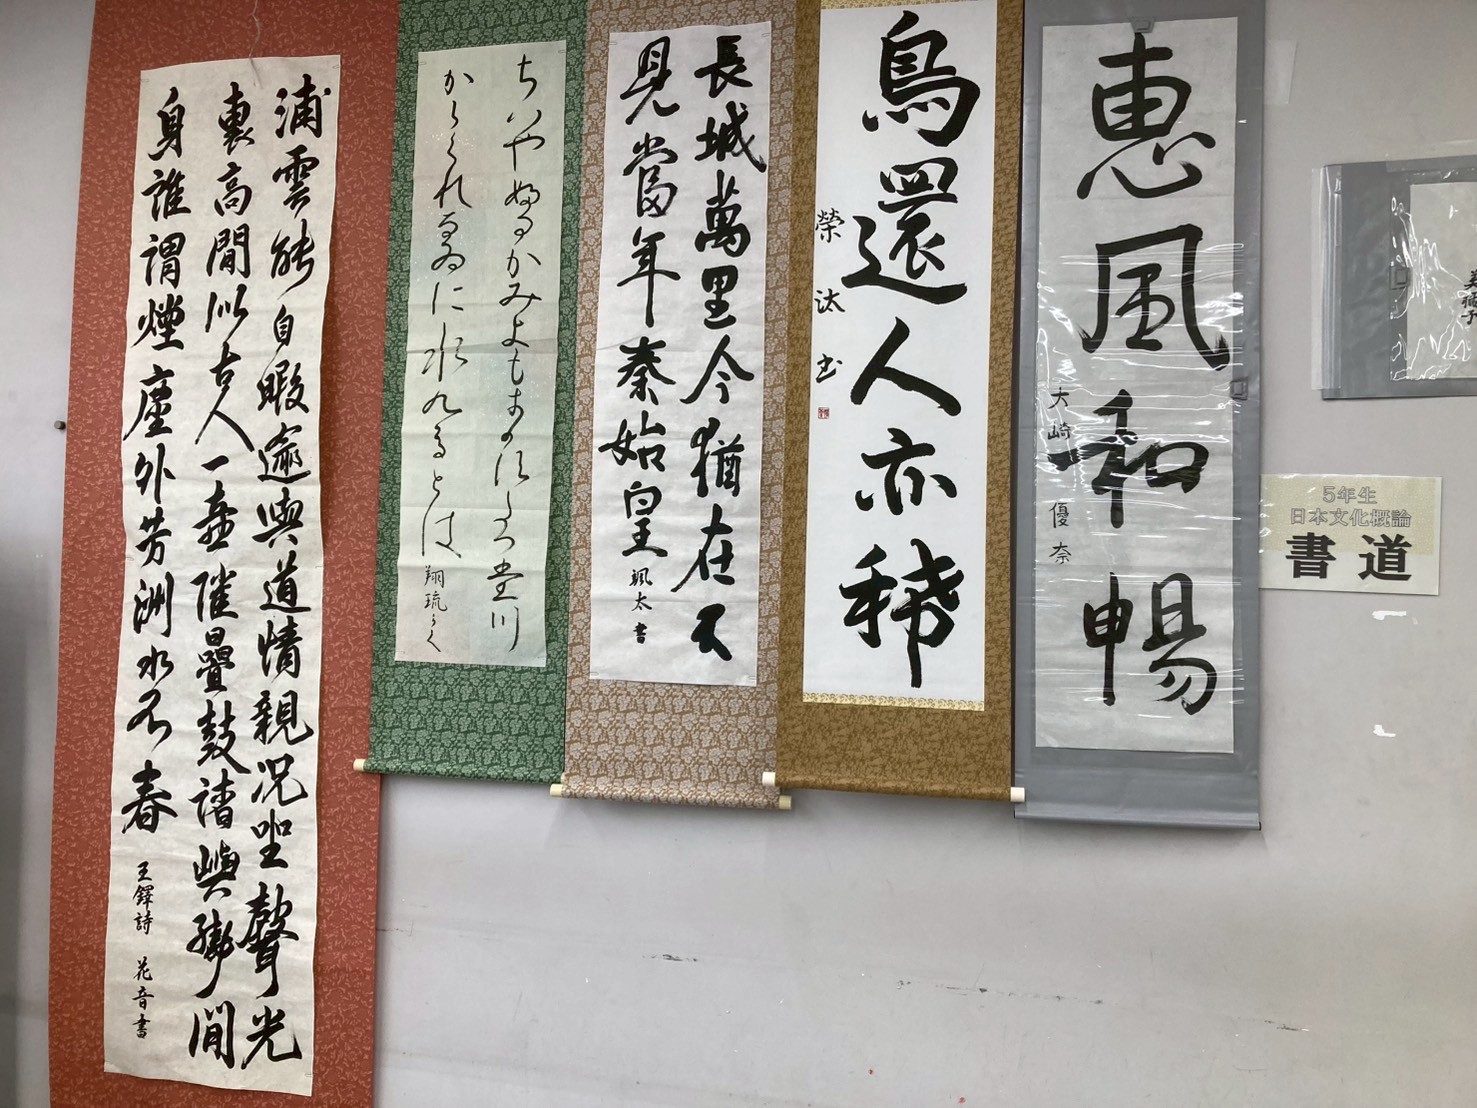 5年生
日本文化概論
書道
惠風和暢
大崎優奈
鳥還人亦稀
榮汰書
長城萬里今猶在不
見當年秦始皇 颯太書
ちハやふるかみよもきかす多つ堂川
からくれなゐに水九るとは 翔琉かく
浦雲能自暇 與道情親況坐聲光
裏高閒似古人一壺催疊鼓諸嶼 閒
身誰謂煙塵外芳洲水不春 王鐸詩 花音書